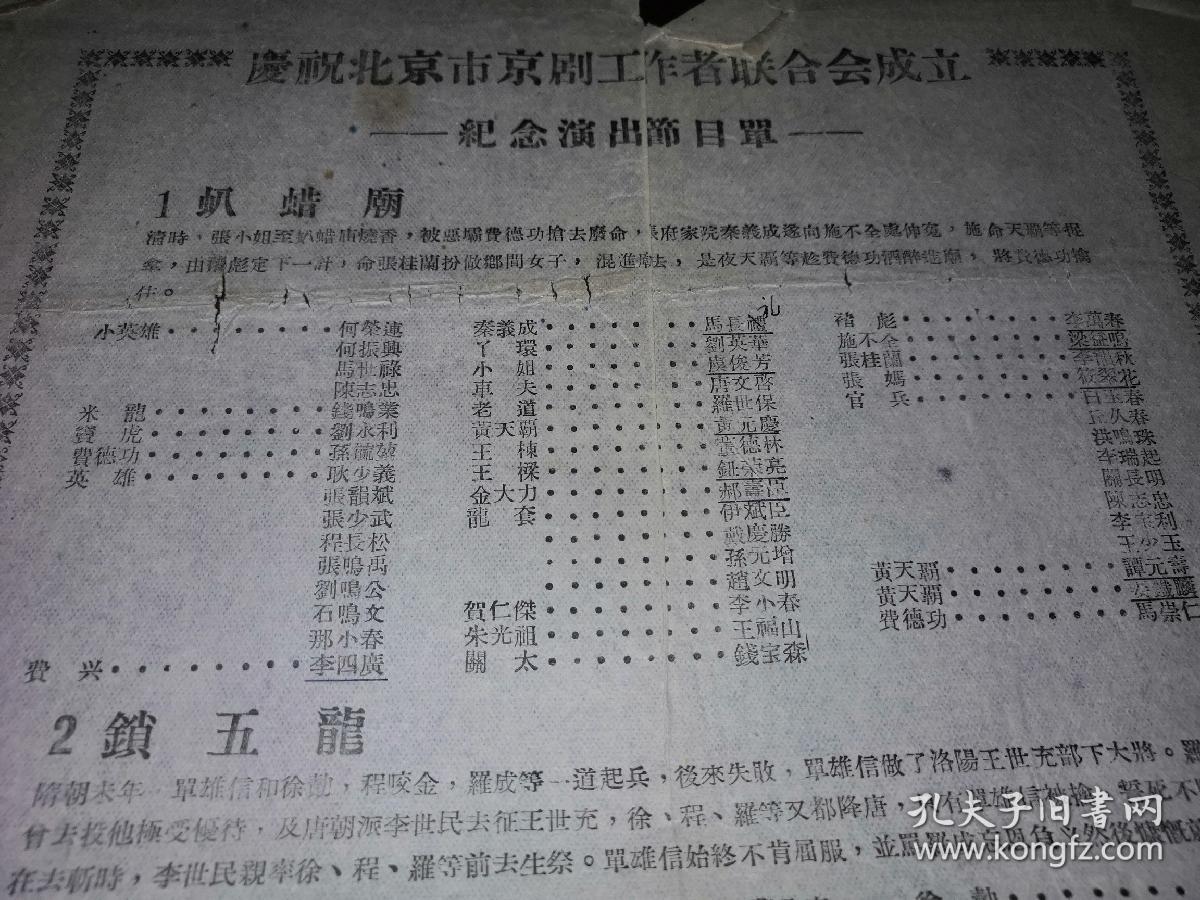 慶祝北京市京剧工作者联合会成立
——紀念演出節目單——
1 虮蜡廟
清時，張小姐至虮蜡庙燒香，被惡霸費德功搶去廢命，長府家院秦義成遂向施不全處伸寃，施命天霸等捉
拿，由褚彪定下一計，命張桂蘭扮做鄉間女子，混進庙去，是夜天霸等趁費德功酒醉進廟，將費德功擒
住。
礼
小英雄 何榮連
何振興
馬世祿
陳志忠
米龍 錢鳴業
竇虎 劉永利
費德功 孫毓堃
英雄 耿少義
張韻斌
張少武
程長松
張鳴禹
劉鳴公
石鳴文
那小春
費兴 李四廣
秦義成 馬長禮
丫環 劉英華
小姐 虞俊芳
車夫 唐文啓
老道 羅世保
黃天霸 黃元慶
王棟 董德林
王樑 鈕荣亮
金大力 郝壽臣
龍套 伊斌臣
戴慶勝
孫元增
趙文明
賀仁傑 李小春
朱光祖 王福山
關太 錢宝森
褚彪 李萬春
施不全 梁益鳴
張桂蘭 李
張媽 筱翠花
官兵 白玉春
丘久春
洪鳴珠
李瑞起
關長明
陳志忠
李宝利
王少玉
黃天霸 譚元壽
黃天霸 姜鐵麟
費德功 馬崇仁
2 鎖五龍
隋朝末年 單雄信和徐勣，程咬金，羅成等一道起兵，後來失敗，單雄信做了洛陽王世充部下大將。羅
曾去投他極受優待，及唐朝派李世民去征王世充，徐、程、羅等又都降唐，只有單雄信被擒，誓死不
在去斬時，李世民親率徐、程、羅等前去生祭。單雄信始終不肯屈服，並罵羅成忘恩負义然後慷慨
徐勣
孔夫子旧書网
kongfz.com